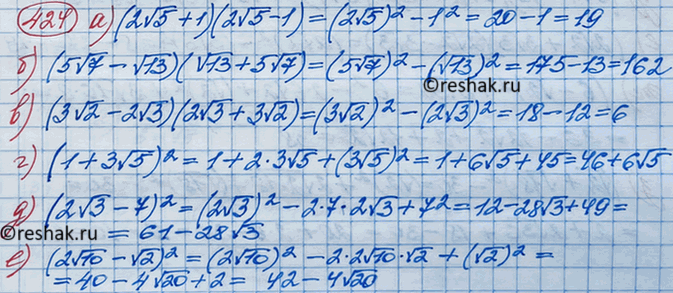 424 а) (2√5 + 1)(2√5 - 1) = (2√5)² - 1² = 20 - 1 = 19
б) (5√7 - √13)(√13 + 5√7) = (5√7)² - (√13)² = 175 - 13 = 162
©reshak.ru
в) (3√2 - 2√3)(2√3 + 3√2) = (3√2)² - (2√3)² = 18 - 12 = 6
г) (1 + 3√5)² = 1 + 2·3√5 + (3√5)² = 1 + 6√5 + 45 = 46 + 6√5
д) (2√3 - 7)² = (2√3)² - 2·7·2√3 + 7² = 12 - 28√3 + 49 =
©reshak.ru
= 61 - 28√3
е) (2√10 - √2)² = (2√10)² - 2·2√10·√2 + (√2)² =
= 40 - 4√20 + 2 = 42 - 4√20